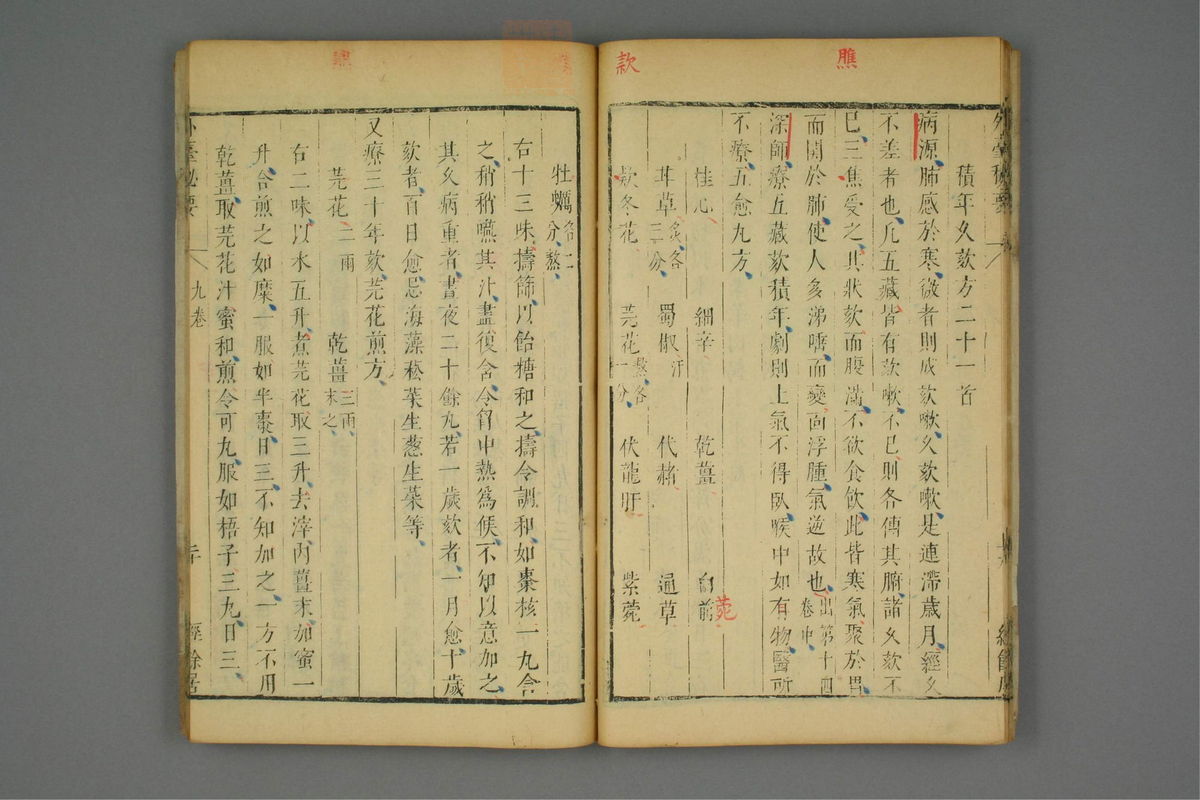 積年久欬方二十一首
病源肺感於寒微者則成欬嗽久欬嗽是連滯歲月經久
不差者也凡五藏皆有欬嗽不已則各傳其腑諸久欬不
已三焦受之其狀欬而腹滿不欲食飲此皆寒氣聚於胃
而關於肺使人多涕唾而變面浮腫氣逆故也出第十四卷中
深師療五藏欬積年劇則上氣不得臥喉中如有物醫所
不療五愈丸方
桂心 細辛 乾薑 白前
甘草三分炙各 蜀椒汗 代赭 通草
款冬花 芫花一分熬各 伏龍肝 紫菀
牡蠣分熬各二
右十三味擣篩以飴糖和之擣令調和如棗核一丸含
之稍稍嚥其汁盡復含令胷中熱為候不知以意加之
其久病重者晝夜二十餘丸若一歲欬者一月愈十歲
欬者百日愈忌海藻菘菜生蔥生菜等
又療三十年欬芫花煎方
芫花二兩 乾薑三兩末之
右二味以水五升煮芫花取三升去滓內薑末加蜜一
升合煎之如糜一服如半棗日三不知加之一方不用
乾薑取芫花汁蜜和煎令可丸服如梧子三丸日三
外臺秘要
九卷
二十
經餘居
款
臕
菀